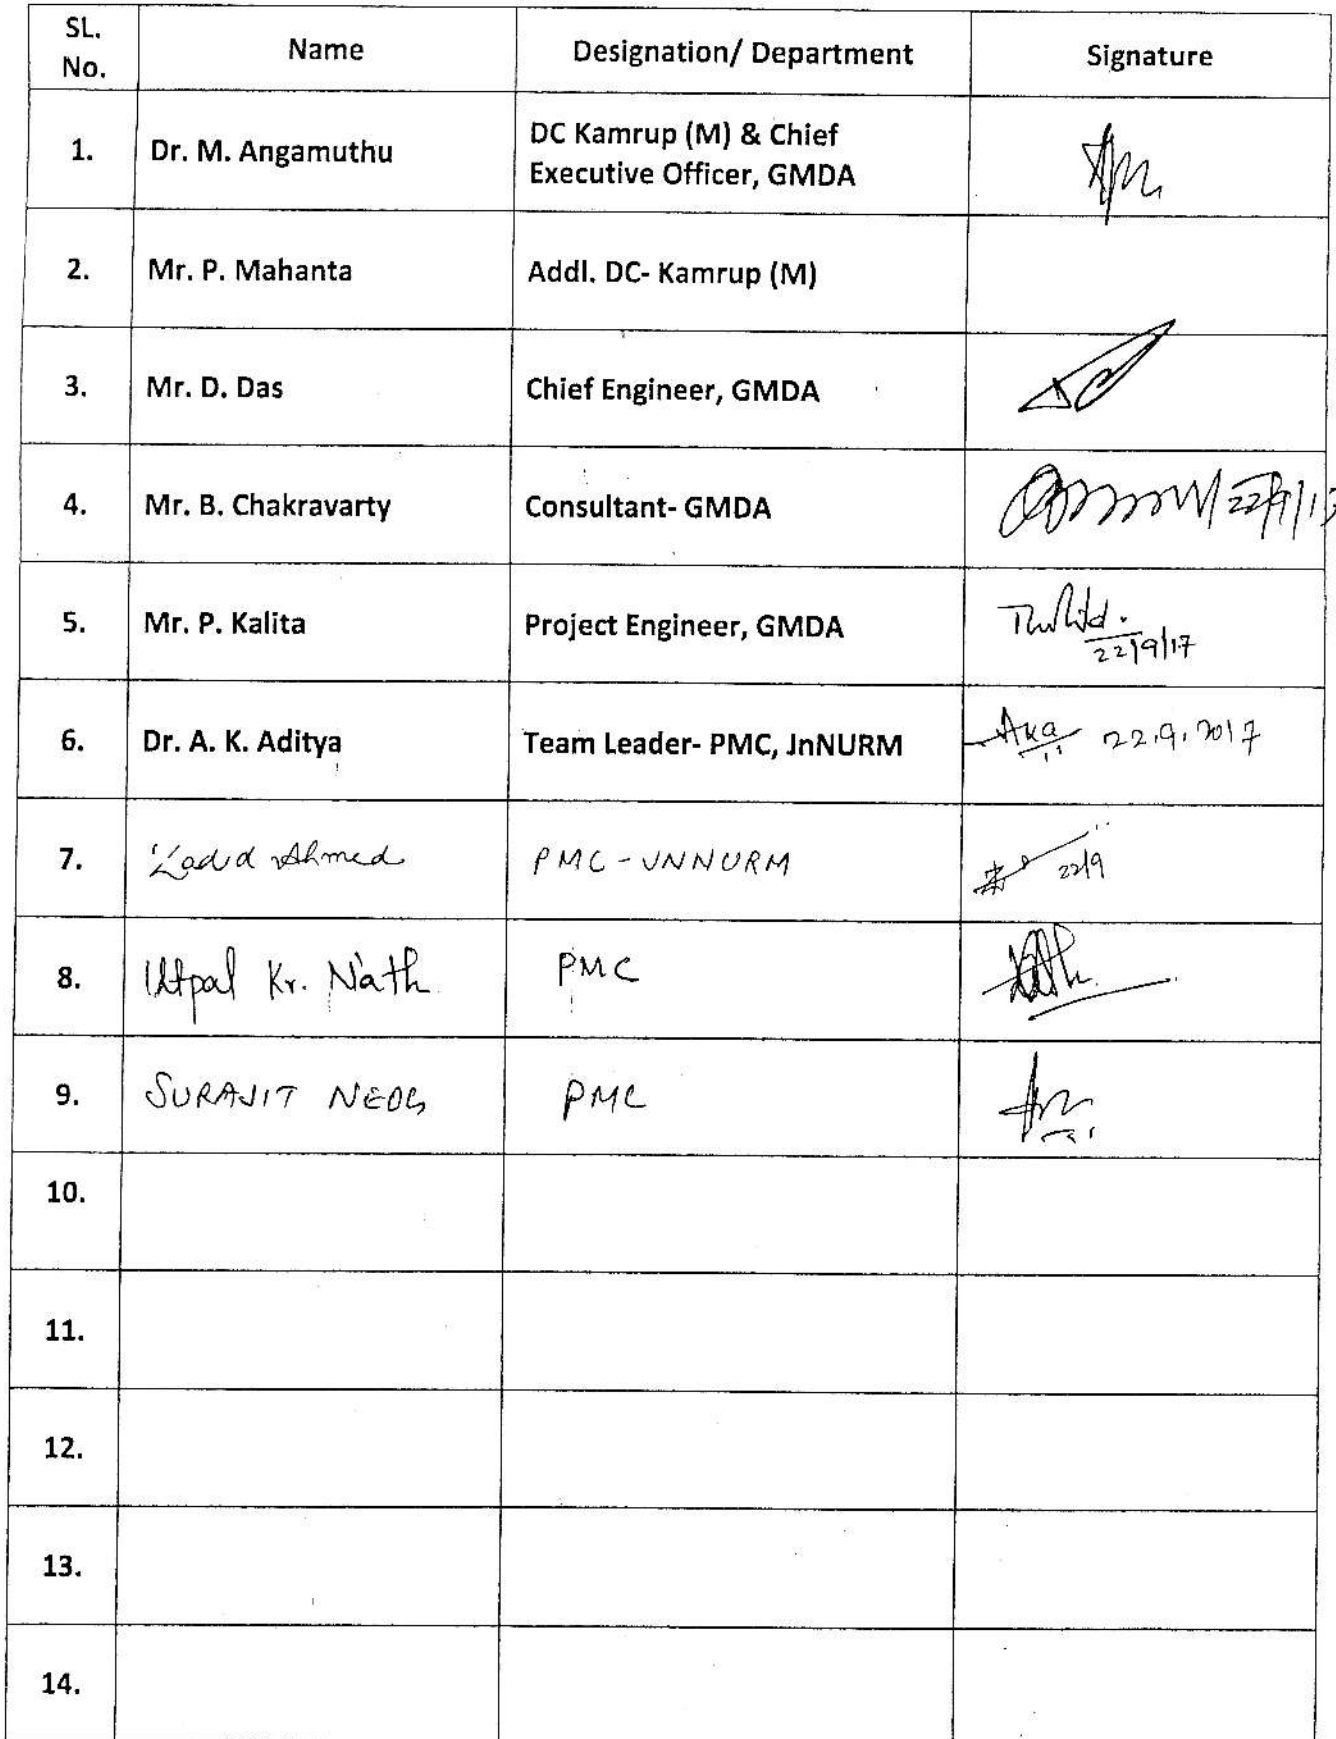 SL. No.
Name
Designation/ Department
Signature
1.
Dr. M. Angamuthu
DC Kamrup (M) & Chief
Executive Officer, GMDA
2.
Mr. P. Mahanta
Addl. DC- Kamrup (M)
3.
Mr. D. Das
Chief Engineer, GMDA
4.
Mr. B. Chakravarty
Consultant- GMDA
22/9/17
5.
Mr. P. Kalita
Project Engineer, GMDA
22/9/17
6.
Dr. A. K. Aditya
Team Leader- PMC, JnNURM
22.9.2017
7.
Ahmed
PMC - JNNURM
22/9
8.
Utpal Kr. Nath
PMC
9.
SURAJIT NEOG
PMC
10.
11.
12.
13.
14.